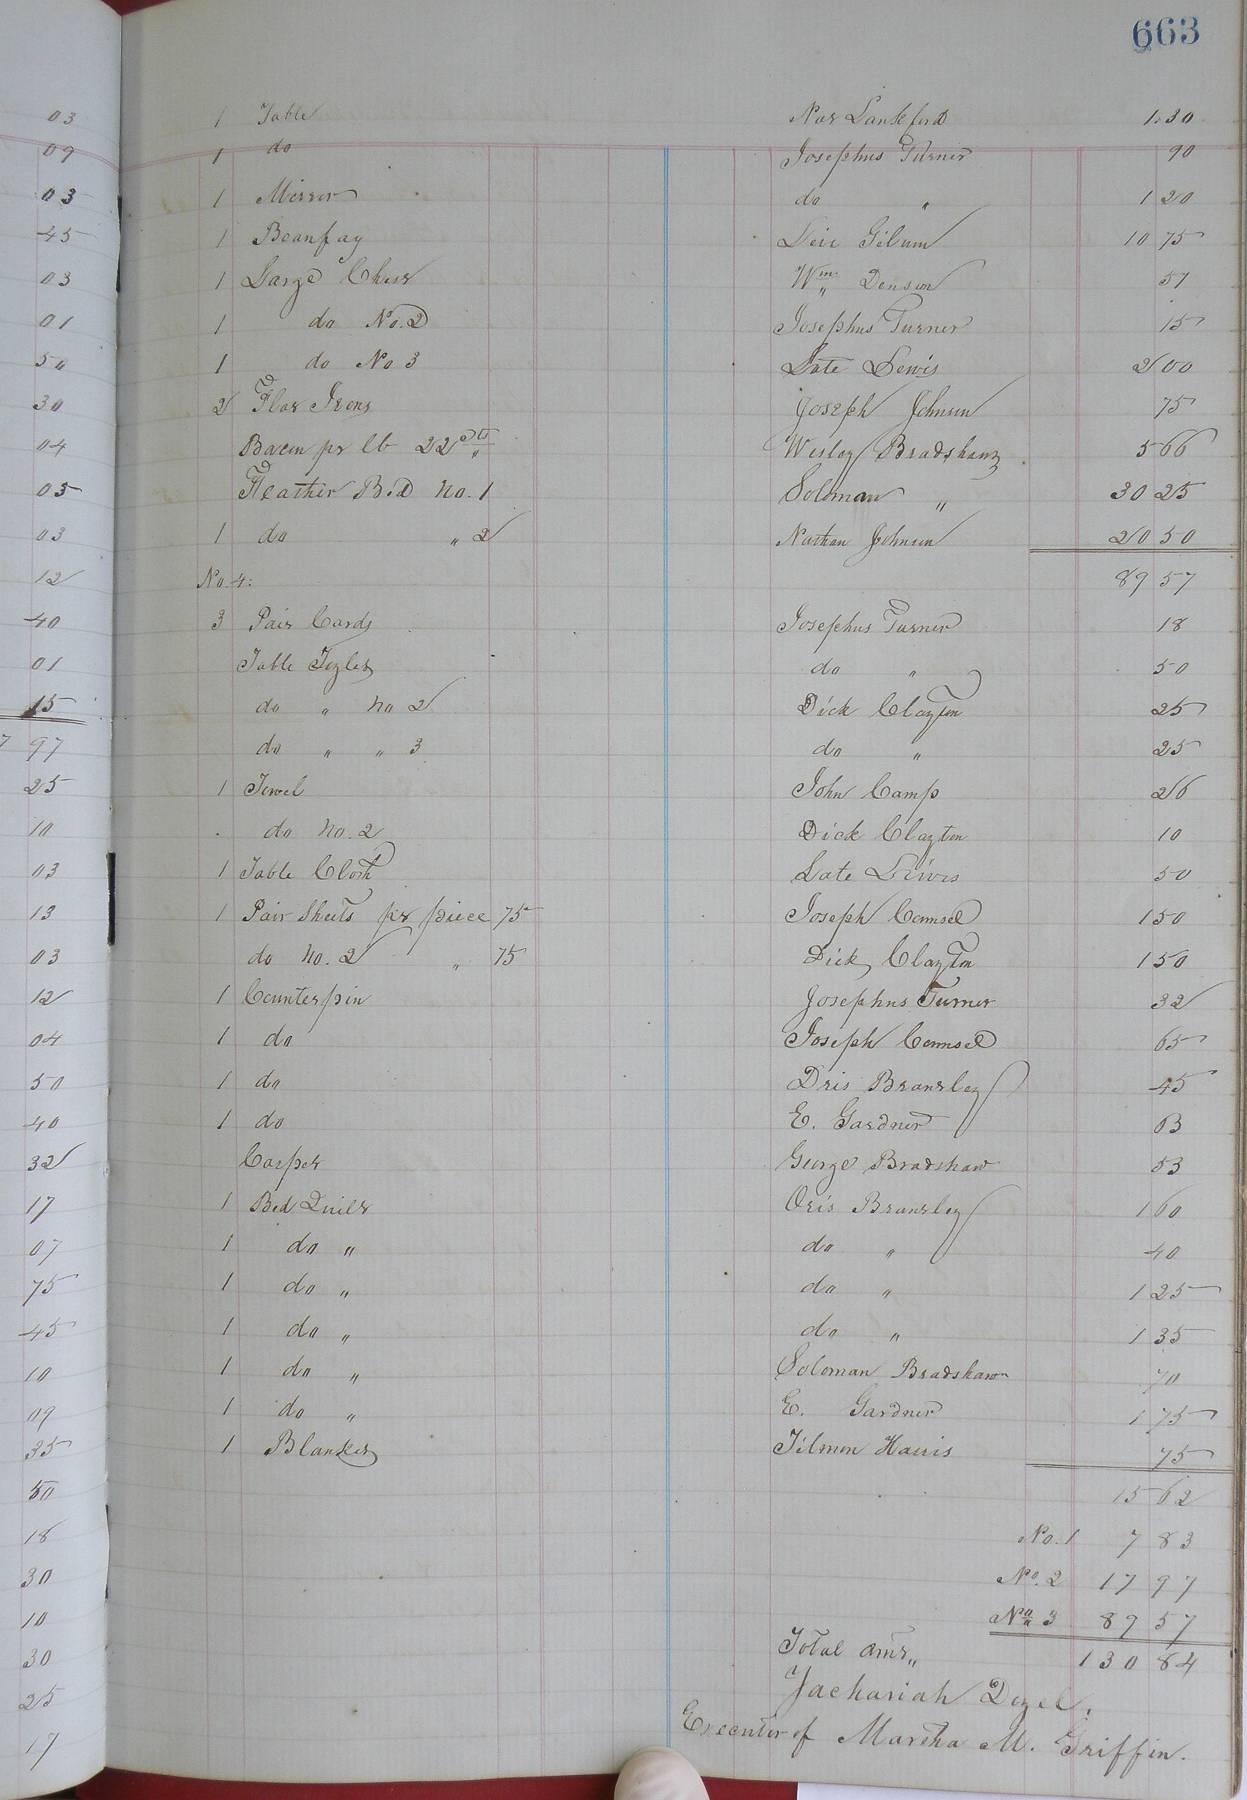 663
03
09
03
45
03
01
50
30
04
05
03
12
40
01
15
7 97
25
10
03
13
03
12
04
50
40
32
17
07
75
45
10
09
35
50
18
30
10
30
25
17
1 Table Nat Lankford 1.30
1 do Josephus Turner 90
1 Mirror do " 1 20
1 Beaufay Gilum 10 75
1 Large Chest Wm Denson 51
1 do No. 2 Josephus Turner 15
1 do No 3 Late Lewis 2 00
2 Flat Irons Joseph Johnson 75
Bacon pr lb 22 Wesley Bradshaw 5 66
Feather Bed No. 1 Soloman " 30 25
1 do " 2 Nathan Johnson 20 50
89 57
No. 4:
3 Pair Cards Josephus Turner 18
Table do " 50
do " No 2 Dick Clayton 25
do " " 3 do " 25
1 Towel John Camp 26
do No. 2 Dick Clayton 10
1 Table Cloth Late Lewis 50
1 Pair Sheets pr piece 75 Joseph Counsel 1 50
do No. 2 " 75 Dick Clayton 1 50
1 Counterpin Josephus Turner 32
1 do Joseph Counsel 65
1 do Brantley 45
1 do E. Gardner 63
Carpet George Bradshaw 53
1 Bed Quilt Oris Brantley 1 60
1 do " do " 40
1 do " do " 1 25
1 do " do " 1 35
1 do " Soloman Bradshaw 70
1 do " E. Gardner 1 75
1 Blanket Tilmon Harris 75
15 62
No. 1 7 83
No. 2 17 97
No 3 89 57
Total Amt " 130 84
Zachariah Deyel.
Executor of Martha M. Griffin.